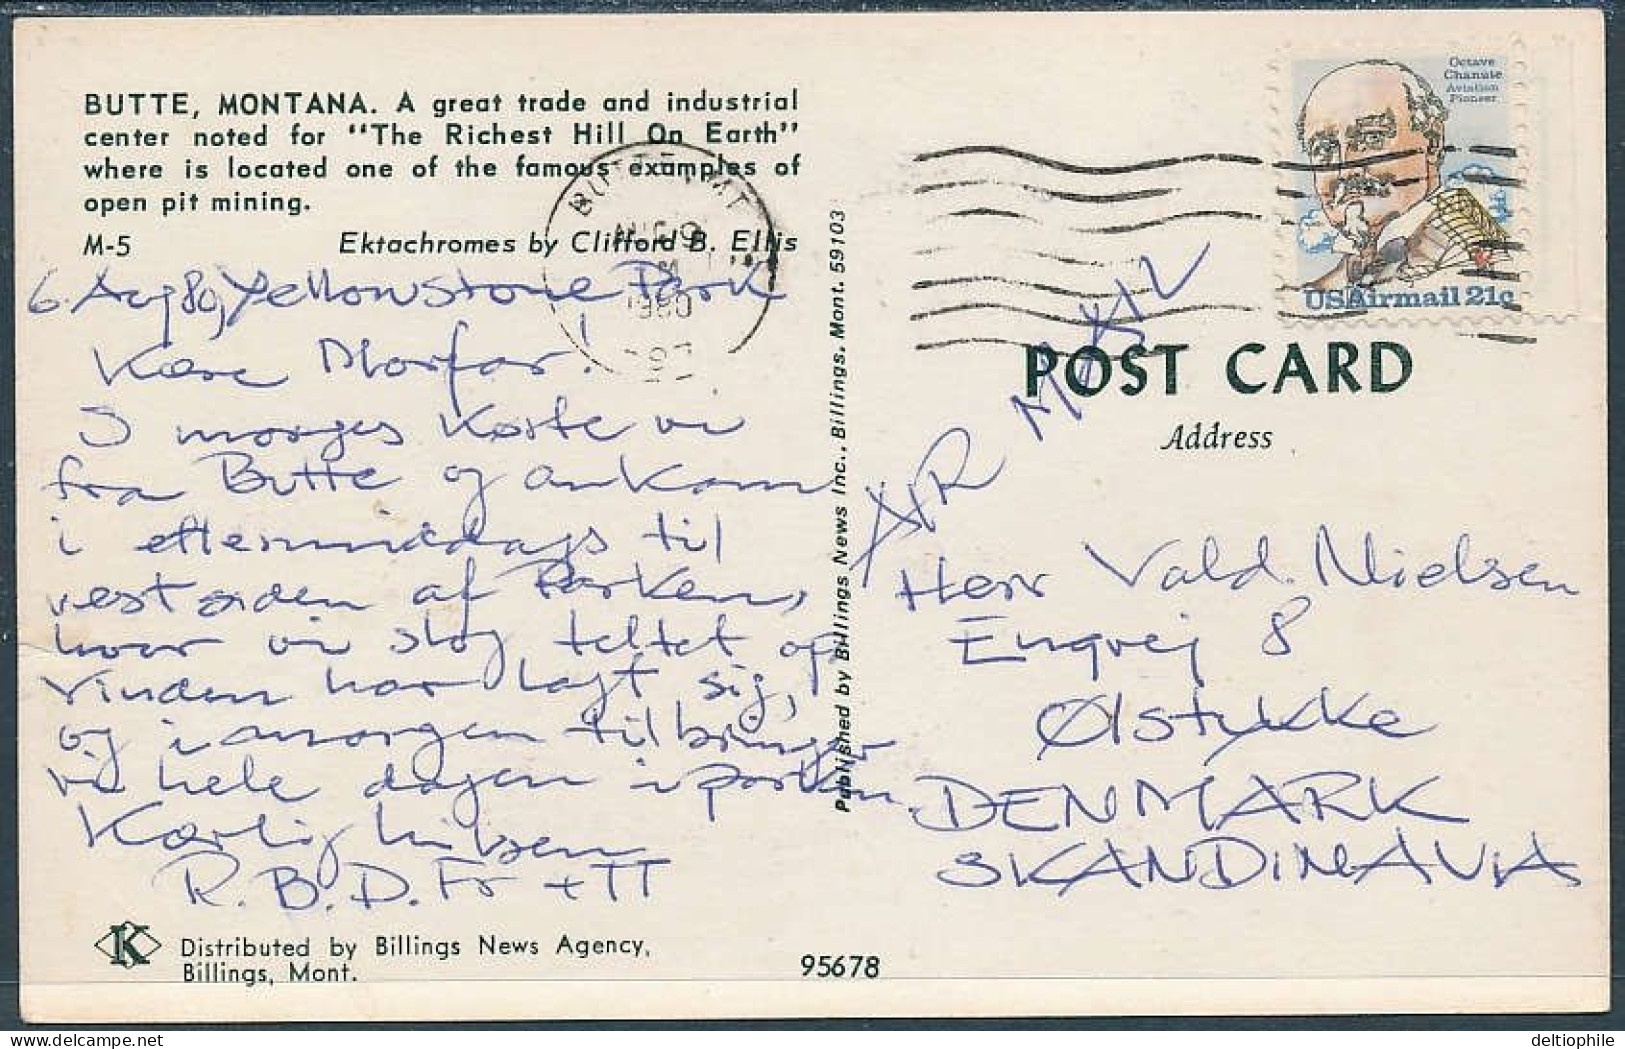 BUTTE, MONTANA. A great trade and industrial
center noted for "The Richest Hill On Earth"
where is located one of the famous examples of
open pit mining.
M-5 Ektachromes by Clifford B. Ellis
6. Aug 80, Yellowstone Park
Kære Morfar!
I morges kørte vi
fra Butte og ankom
i eftermiddags til
vestsiden af Parken,
hvor vi slog teltet op
vinden har lagt sig,
og i morgen tilbringer
vi hele dagen i parken.
Kærlig hilsen
R. B. D.
K
Distributed by Billings News Agency,
Billings, Mont.
95678
Published by Billings News Inc., Billings, Mont. 59103
BUTTE MT
AUG 9
1980
Octave
Chanute
Aviation
Pioneer
USAirmail 21c
POST CARD
Address
AIR MAIL
Herr Vald. Nielsen
Engvej 8
Ølstykke
DENMARK
SKANDINAVIA
deltiophile